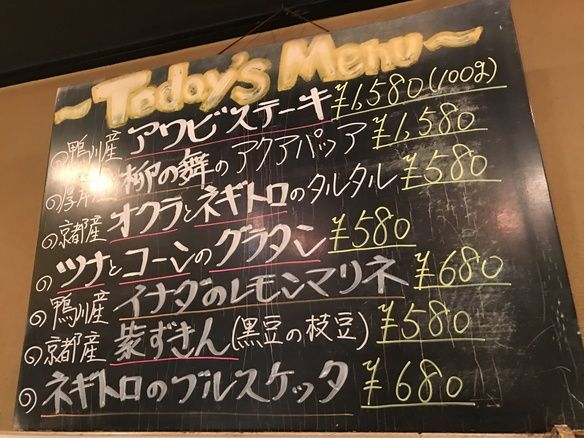 ~Today's Menu~
◎鴨川産 アワビステーキ ¥1,580(100g)
◎厚岸産 柳の舞のアクアパッツァ ¥1,580
◎京都産 オクラとネギトロのタルタル ¥580
◎ツナとコーンのグラタン ¥580
◎鴨川産 イナダのレモンマリネ ¥680
◎京都産 紫ずきん(黒豆の枝豆) ¥580
◎ネギトロのブルスケッタ ¥680